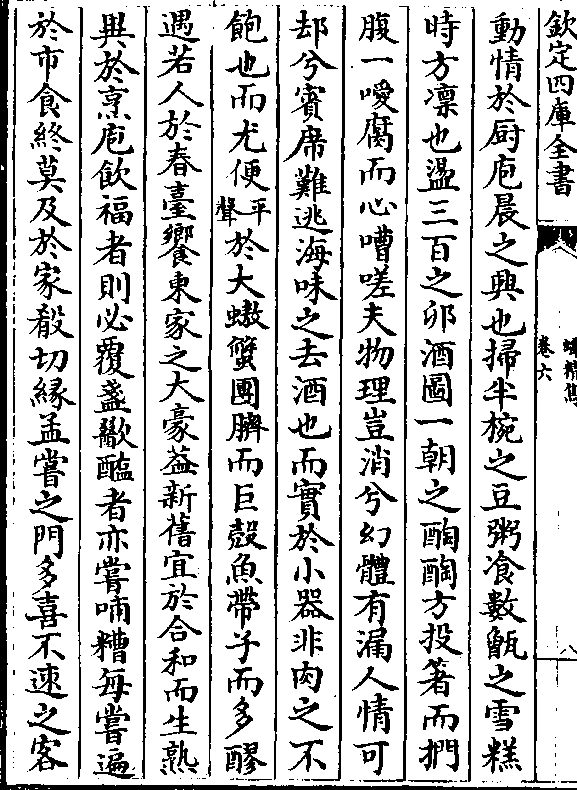 欽定四庫全書
卷六
動情於厨庖晨之興也掃半椀之豆粥飡數甑之雪糕
時方凛也盪三百之卯酒圖一朝之酕醄方投箸而捫
腹一噯腐而心嘈嗟夫物理豈消兮幻體有漏人情可
却兮賓席難逃海味之去酒也而實於小器非肉之不
飽也而尤便平聲於大螯蟹團臍而巨殼魚帶子而多醪
遇若人於春臺饗東家之大豪葢新舊宜於合和而生熟
異於烹庖飲福者則必覆盞歠醢者亦嘗喃糟每嘗遍
於市食終莫及於家殽切緣孟嘗之門多喜不速之客